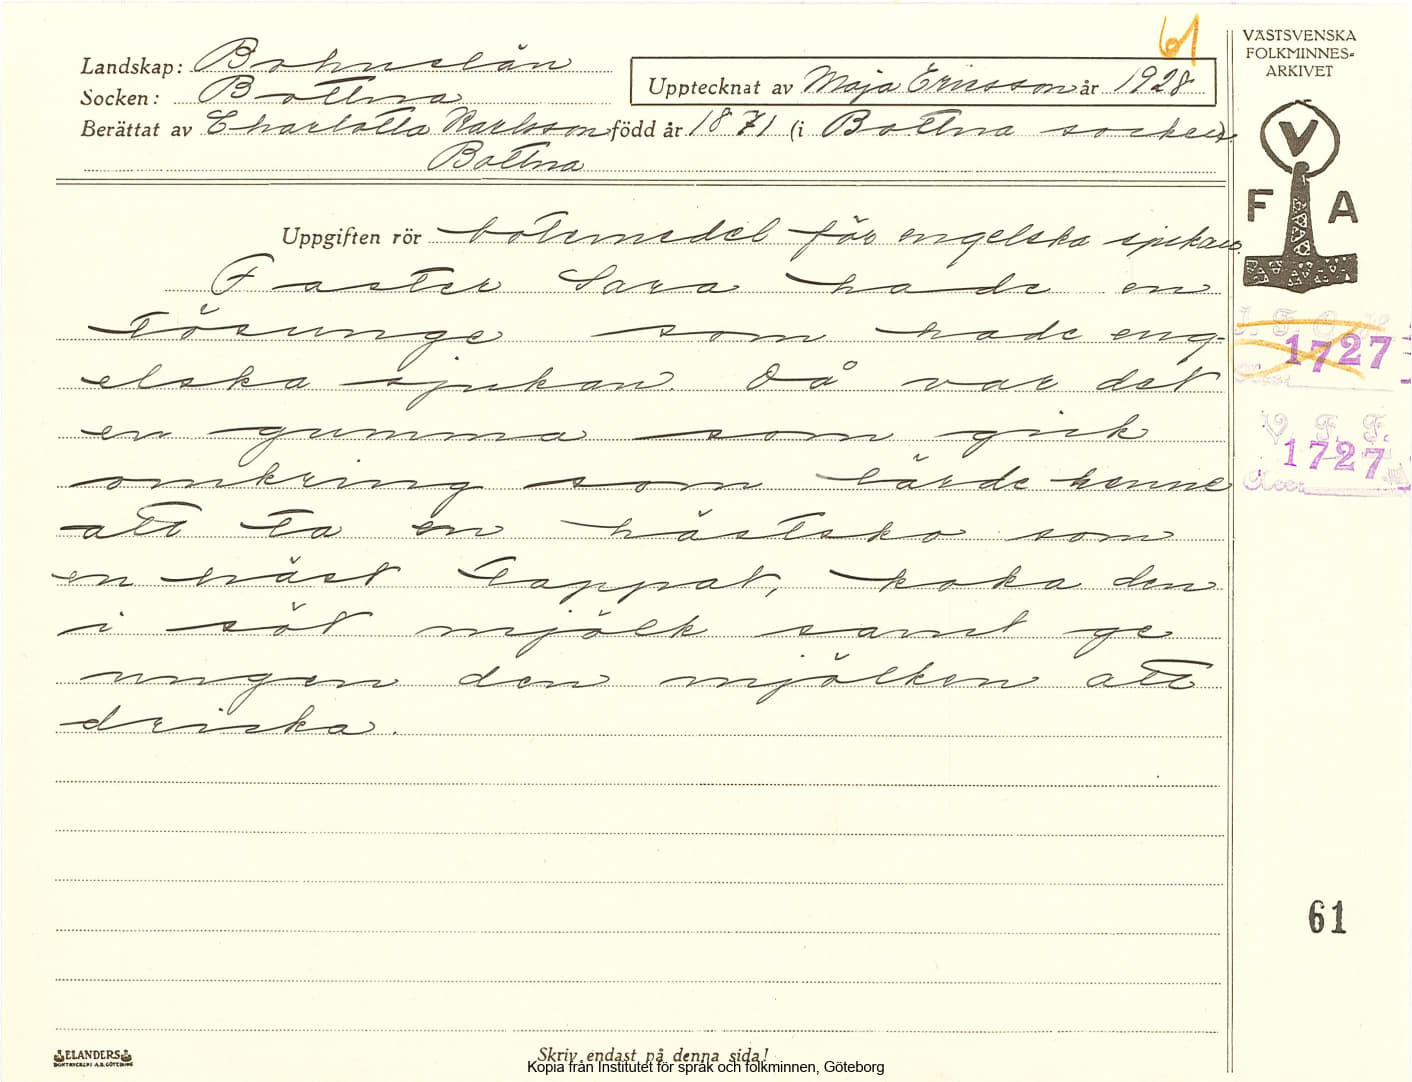 61
Landskap: Bohuslän
Socken: Bottna
Upptecknat av Maja Ericsson år 1928
Berättat av Charlotta Karlsson född år 1871 (i Bottna socken).
Bottna
VÄSTSVENSKA
FOLKMINNES-
ARKIVET
V
F A
Uppgiften rör botemedel för engelska sjukan.
Faster Sara hade en
tösunge som hade eng-
elska sjukan Då var det
en gumma som gick
omkring som lärde henne
att ta en hästsko som
en häst tappat, koka den
i söt mjölk samt ge
ungen den mjölken att
dricka.
1727
V. F. F.
1727
Acc.
61
ELANDERS
BOKTRYCKERI A.B. GÖTEBORG
Skriv endast på denna sida!
Kopia från Institutet för språk och folkminnen, Göteborg